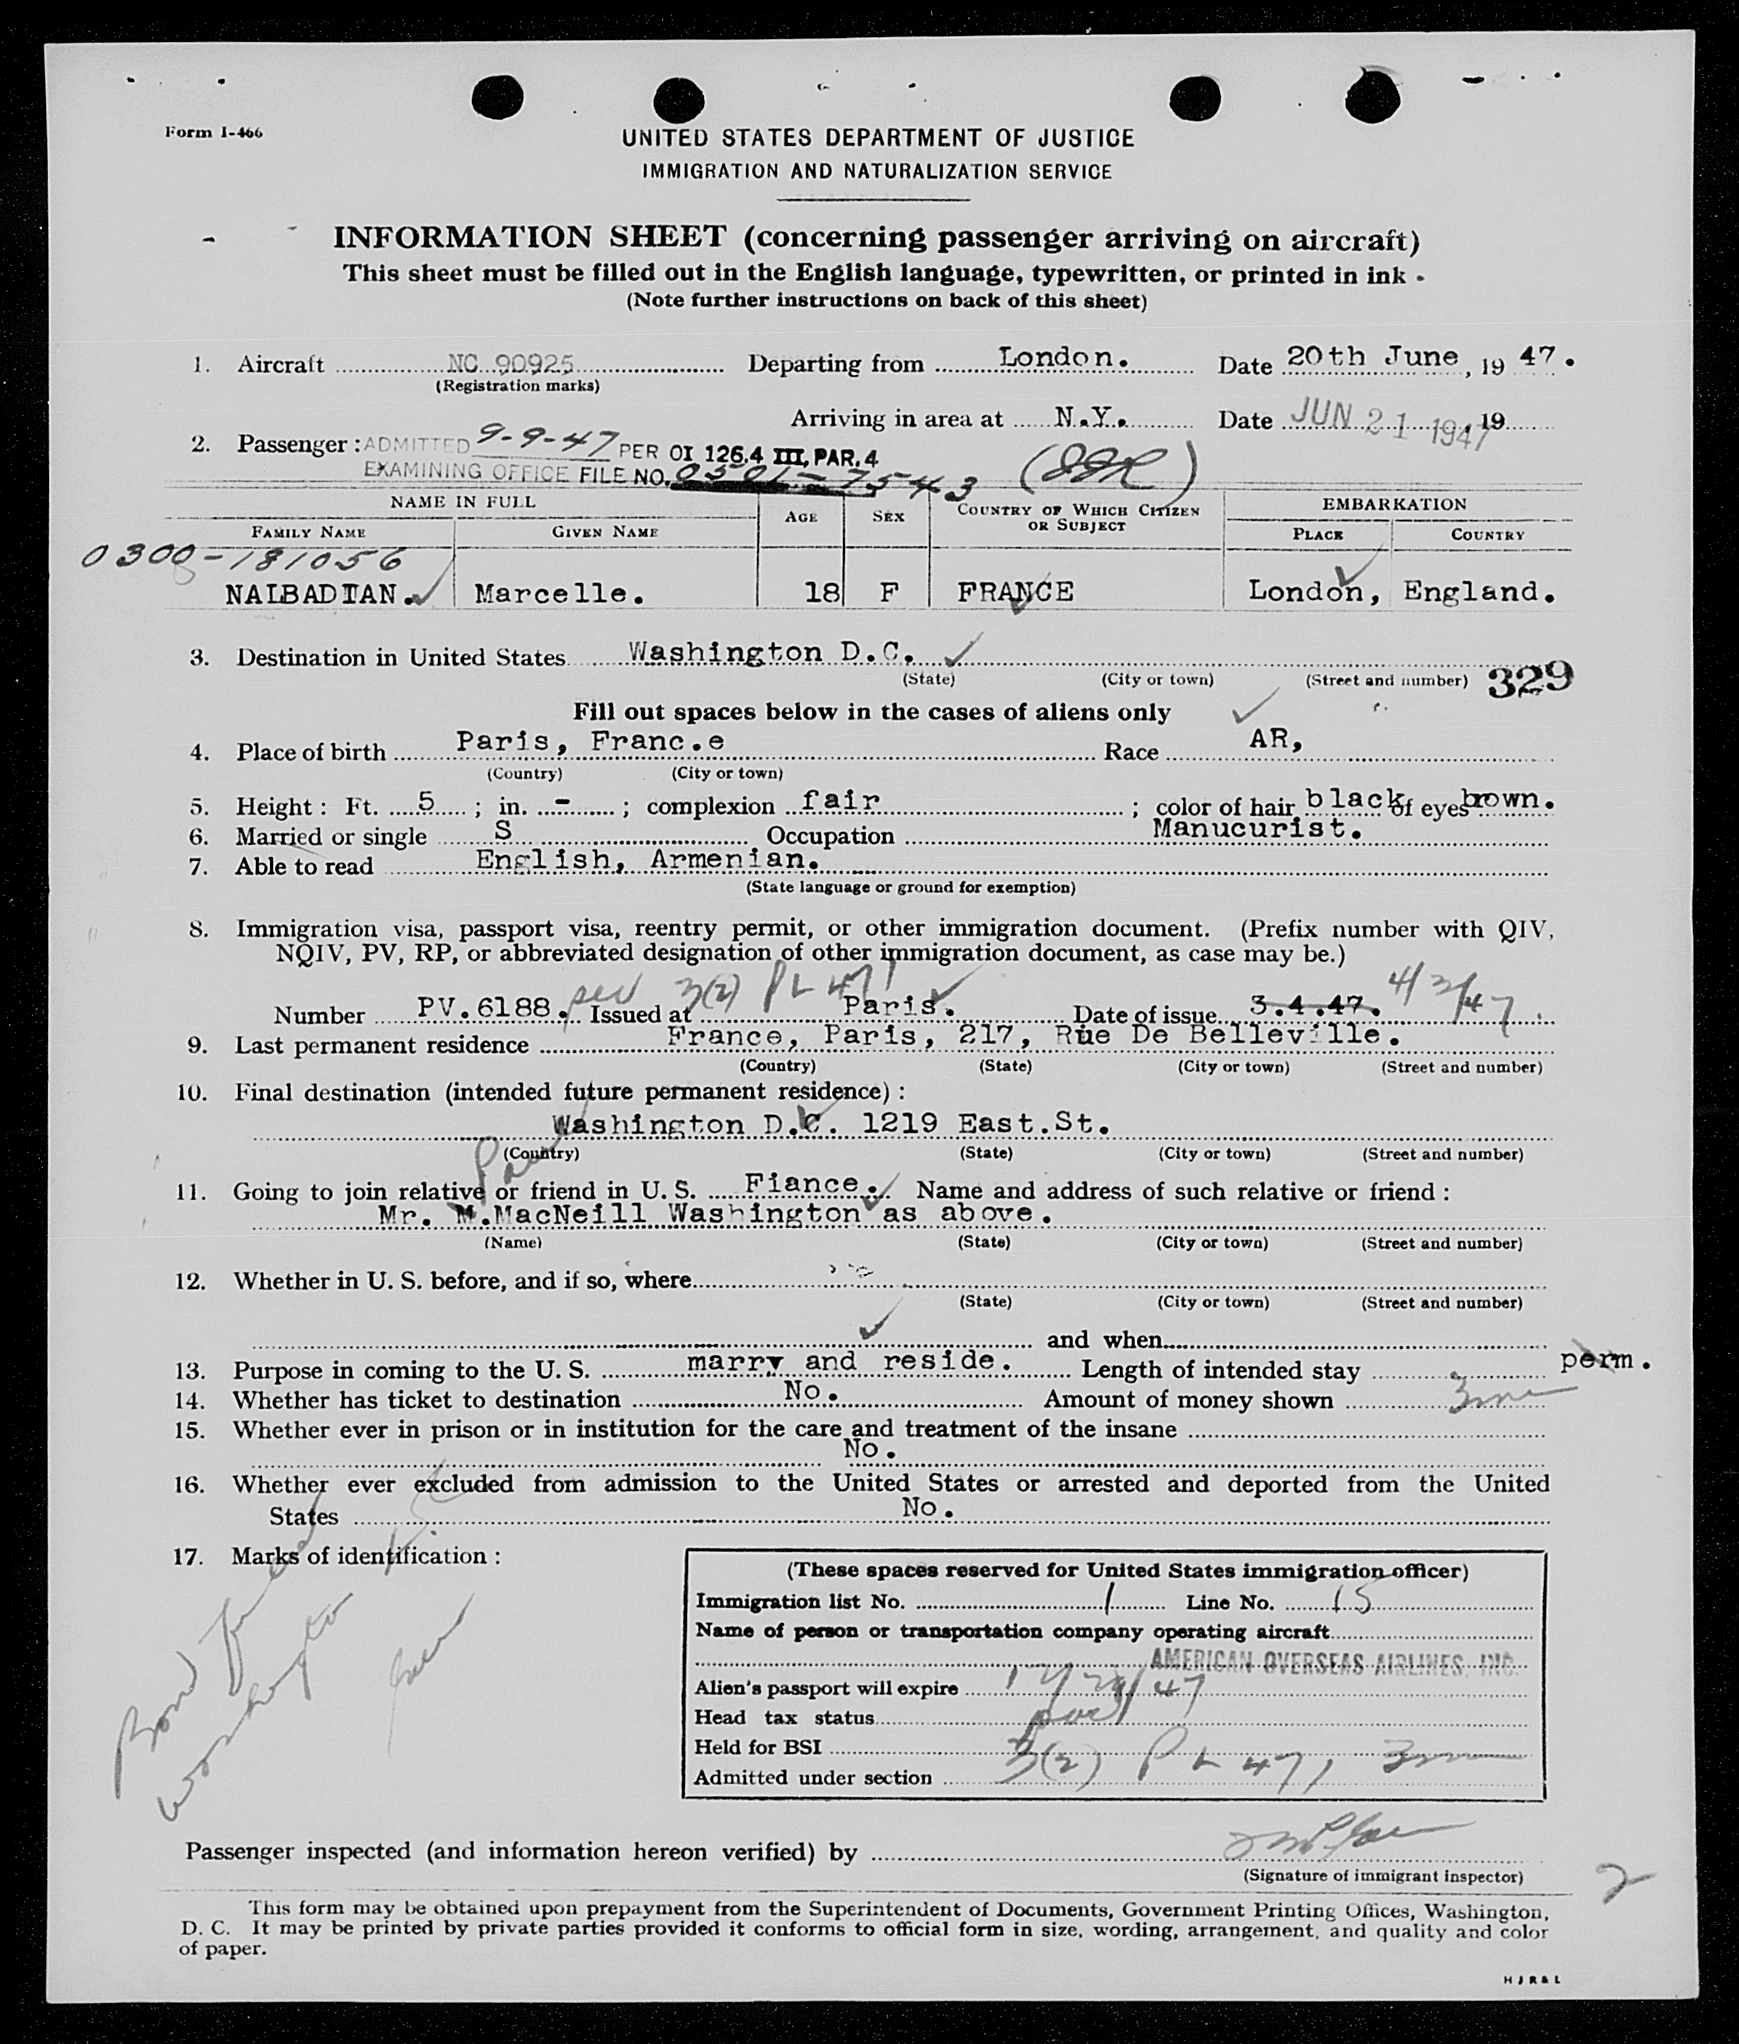 Form I-466
UNITED STATES DEPARTMENT OF JUSTICE
IMMIGRATION AND NATURALIZATION SERVICE
INFORMATION SHEET (concerning passenger arriving on aircraft)
This sheet must be filled out in the English language, typewritten, or printed in ink.
(Note further instructions on back of this sheet)
1. Aircraft NC 90925 Departing from London. Date 20th June, 19 47.
(Registration marks)
Arriving in area at N.Y. Date JUN 21 1947, 19
2. Passenger: ADMITTED 9-9-47 PER OI 126.4 III, PAR. 4
EXAMINING OFFICE FILE NO. 0501-7543
NAME IN FULL AGE SEX COUNTRY OF WHICH CITIZEN OR SUBJECT EMBARKATION
FAMILY NAME GIVEN NAME PLACE COUNTRY
0300-181056
NALBADIAN. Marcelle. 18 F FRANCE London, England.
3. Destination in United States Washington D.C.
(State) (City or town) (Street and number) 329
Fill out spaces below in the cases of aliens only
4. Place of birth Paris, Franc.e Race AR,
(Country) (City or town)
5. Height: Ft. 5; in. -; complexion fair; color of hair black of eyes brown.
6. Married or single S Occupation Manucurist.
7. Able to read English, Armenian.
(State language or ground for exemption)
8. Immigration visa, passport visa, reentry permit, or other immigration document. (Prefix number with QIV,
NQIV, PV, RP, or abbreviated designation of other immigration document, as case may be.)
3(2) PL 471 4/3/47.
Number PV.6188. Issued at Paris. Date of issue 3.4.47.
9. Last permanent residence France, Paris, 217, Rue De Belleville.
(Country) (State) (City or town) (Street and number)
10. Final destination (intended future permanent residence):
Washington D.C. 1219 East.St.
(Country) (State) (City or town) (Street and number)
11. Going to join relative or friend in U. S. Fiance. Name and address of such relative or friend:
Mr. M.MacNeill Washington as above.
(Name) (State) (City or town) (Street and number)
12. Whether in U. S. before, and if so, where
(State) (City or town) (Street and number)
and when
13. Purpose in coming to the U. S. marry and reside. Length of intended stay perm.
14. Whether has ticket to destination No. Amount of money shown
15. Whether ever in prison or in institution for the care and treatment of the insane
No.
16. Whether ever excluded from admission to the United States or arrested and deported from the United
States No.
17. Marks of identification:
(These spaces reserved for United States immigration officer)
Immigration list No. 1 Line No. 15
Name of person or transportation company operating aircraft
AMERICAN OVERSEAS AIRLINES, INC.
Alien's passport will expire
Head tax status
Held for BSI
Admitted under section 3(2) PL 471
Passenger inspected (and information hereon verified) by
(Signature of immigrant inspector)
2
This form may be obtained upon prepayment from the Superintendent of Documents, Government Printing Offices, Washington,
D. C. It may be printed by private parties provided it conforms to official form in size, wording, arrangement, and quality and color
of paper.
H J R & L